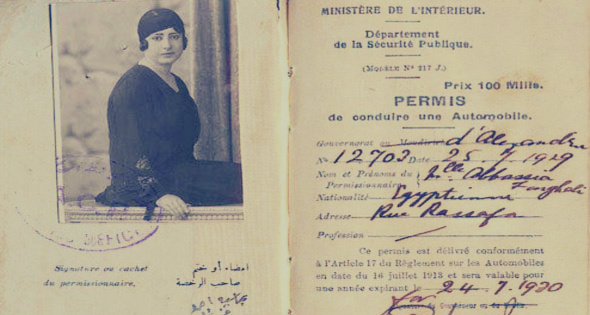 Signature ou cachet
du permissionnaire.
امضاء أو ختم
صاحب الرخصة
MINISTÈRE DE L'INTÉRIEUR.
Département
de la Sécurité Publique.
(MODÈLE Nº 217 J.)
Prix 100 Mills.
PERMIS
de conduire une Automobile.
Gouvernorat ou d'Alexandrie
Nº 12703 Date 25.7.1929
Nom et Prénoms du Mlle Abbassia
Permissionnaire
Nationalité Egyptienne
Adresse Rue Rassafa
Profession
Ce permis est délivré conformément
à l'Article 17 du Règlement sur les Automobiles
en date du 16 juillet 1913 et sera valable pour
une année expirant le 24.7.1930